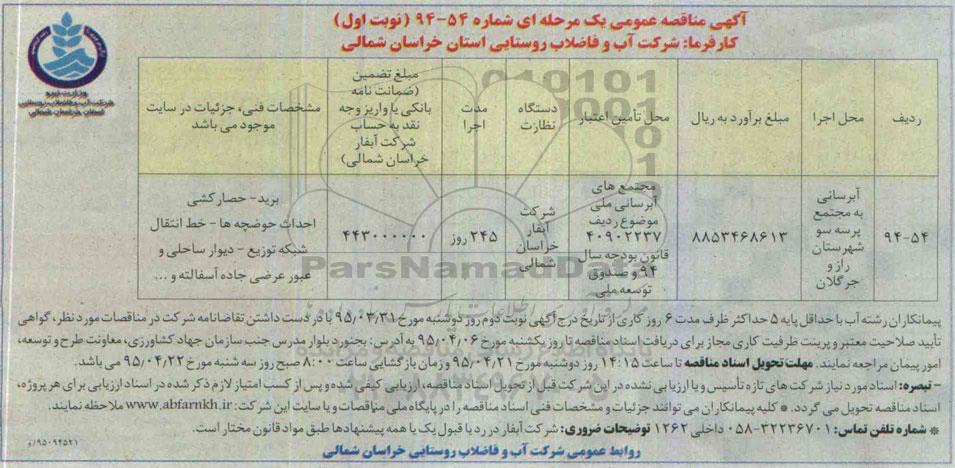 آگهی مناقصه عمومی یک مرحله ای شماره ۵۴-۹۴ (نوبت اول)
کارفرما: شرکت آب و فاضلاب روستایی استان خراسان شمالی
وزارت نیرو
شرکت آب و فاضلاب روستایی
استان خراسان شمالی
ردیف
محل اجرا
مبلغ برآورد به ریال
محل تأمین اعتبار
دستگاه
نظارت
مدت
اجرا
مبلغ تضمین
(ضمانت نامه
بانکی یا واریز وجه
نقد به حساب
شرکت آبفار
خراسان شمالی)
مشخصات فنی، جزئیات در سایت
موجود می باشد
۹۴-۵۴
آبرسانی
به مجتمع
پرسه سو
شهرستان
راز و
جرگلان
۸۸۵۳۴۶۸۶۱۳
مجتمع های
آبرسانی ملی
موضوع ردیف
۴۰۹۰۲۲۳۷
قانون بودجه سال
۹۴ و صندوق
توسعه ملی
شرکت
آبفار
خراسان
شمالی
۲۴۵ روز
۴۴۳۰۰۰۰۰۰
برید- حصارکشی
احداث حوضچه ها - خط انتقال
شبکه توزیع - دیوار ساحلی و
عبور عرضی جاده آسفالته و ...
ParsNamadData
پیمانکاران رشته آب با حداقل پایه ۵ حداکثر ظرف مدت ۶ روز کاری از تاریخ درج آگهی نوبت دوم روز دوشنبه مورخ ۹۵/۰۳/۳۱ با در دست داشتن تقاضانامه شرکت در مناقصات مورد نظر، گواهی
تأیید صلاحیت معتبر و پرینت ظرفیت کاری مجاز برای دریافت اسناد مناقصه تا روز یکشنبه مورخ ۹۵/۰۴/۰۶ به آدرس: بجنورد بلوار مدرس جنب سازمان جهاد کشاورزی، معاونت طرح و توسعه،
امور پیمان مراجعه نمایند. مهلت تحویل اسناد مناقصه تا ساعت ۱۴:۱۵ روز دوشنبه مورخ ۹۵/۰۴/۲۱ و زمان بازگشایی ساعت ۸:۰۰ صبح روز سه شنبه مورخ ۹۵/۰۴/۲۲ می باشد.
- تبصره: اسناد مورد نیاز شرکت های تازه تأسیس و یا ارزیابی نشده در این شرکت قبل از تحویل اسناد مناقصه، ارزیابی کیفی شده و پس از کسب امتیاز لازم ذکر شده در اسناد ارزیابی برای هر پروژه،
اسناد مناقصه تحویل می گردد. * کلیه پیمانکاران می توانند جزئیات و مشخصات فنی اسناد مناقصه را در پایگاه ملی مناقصات و یا سایت این شرکت: www.abfarnkh.ir ملاحظه نمایند.
* شماره تلفن تماس: ۳۲۲۳۶۷۰۱-۰۵۸ داخلی ۱۲۶۲ توضیحات ضروری: شرکت آبفار در رد یا قبول یک یا همه پیشنهادها طبق مواد قانون مختار است.
روابط عمومی شرکت آب و فاضلاب روستایی خراسان شمالی
۹۵۰۹۴۵۲۱/و